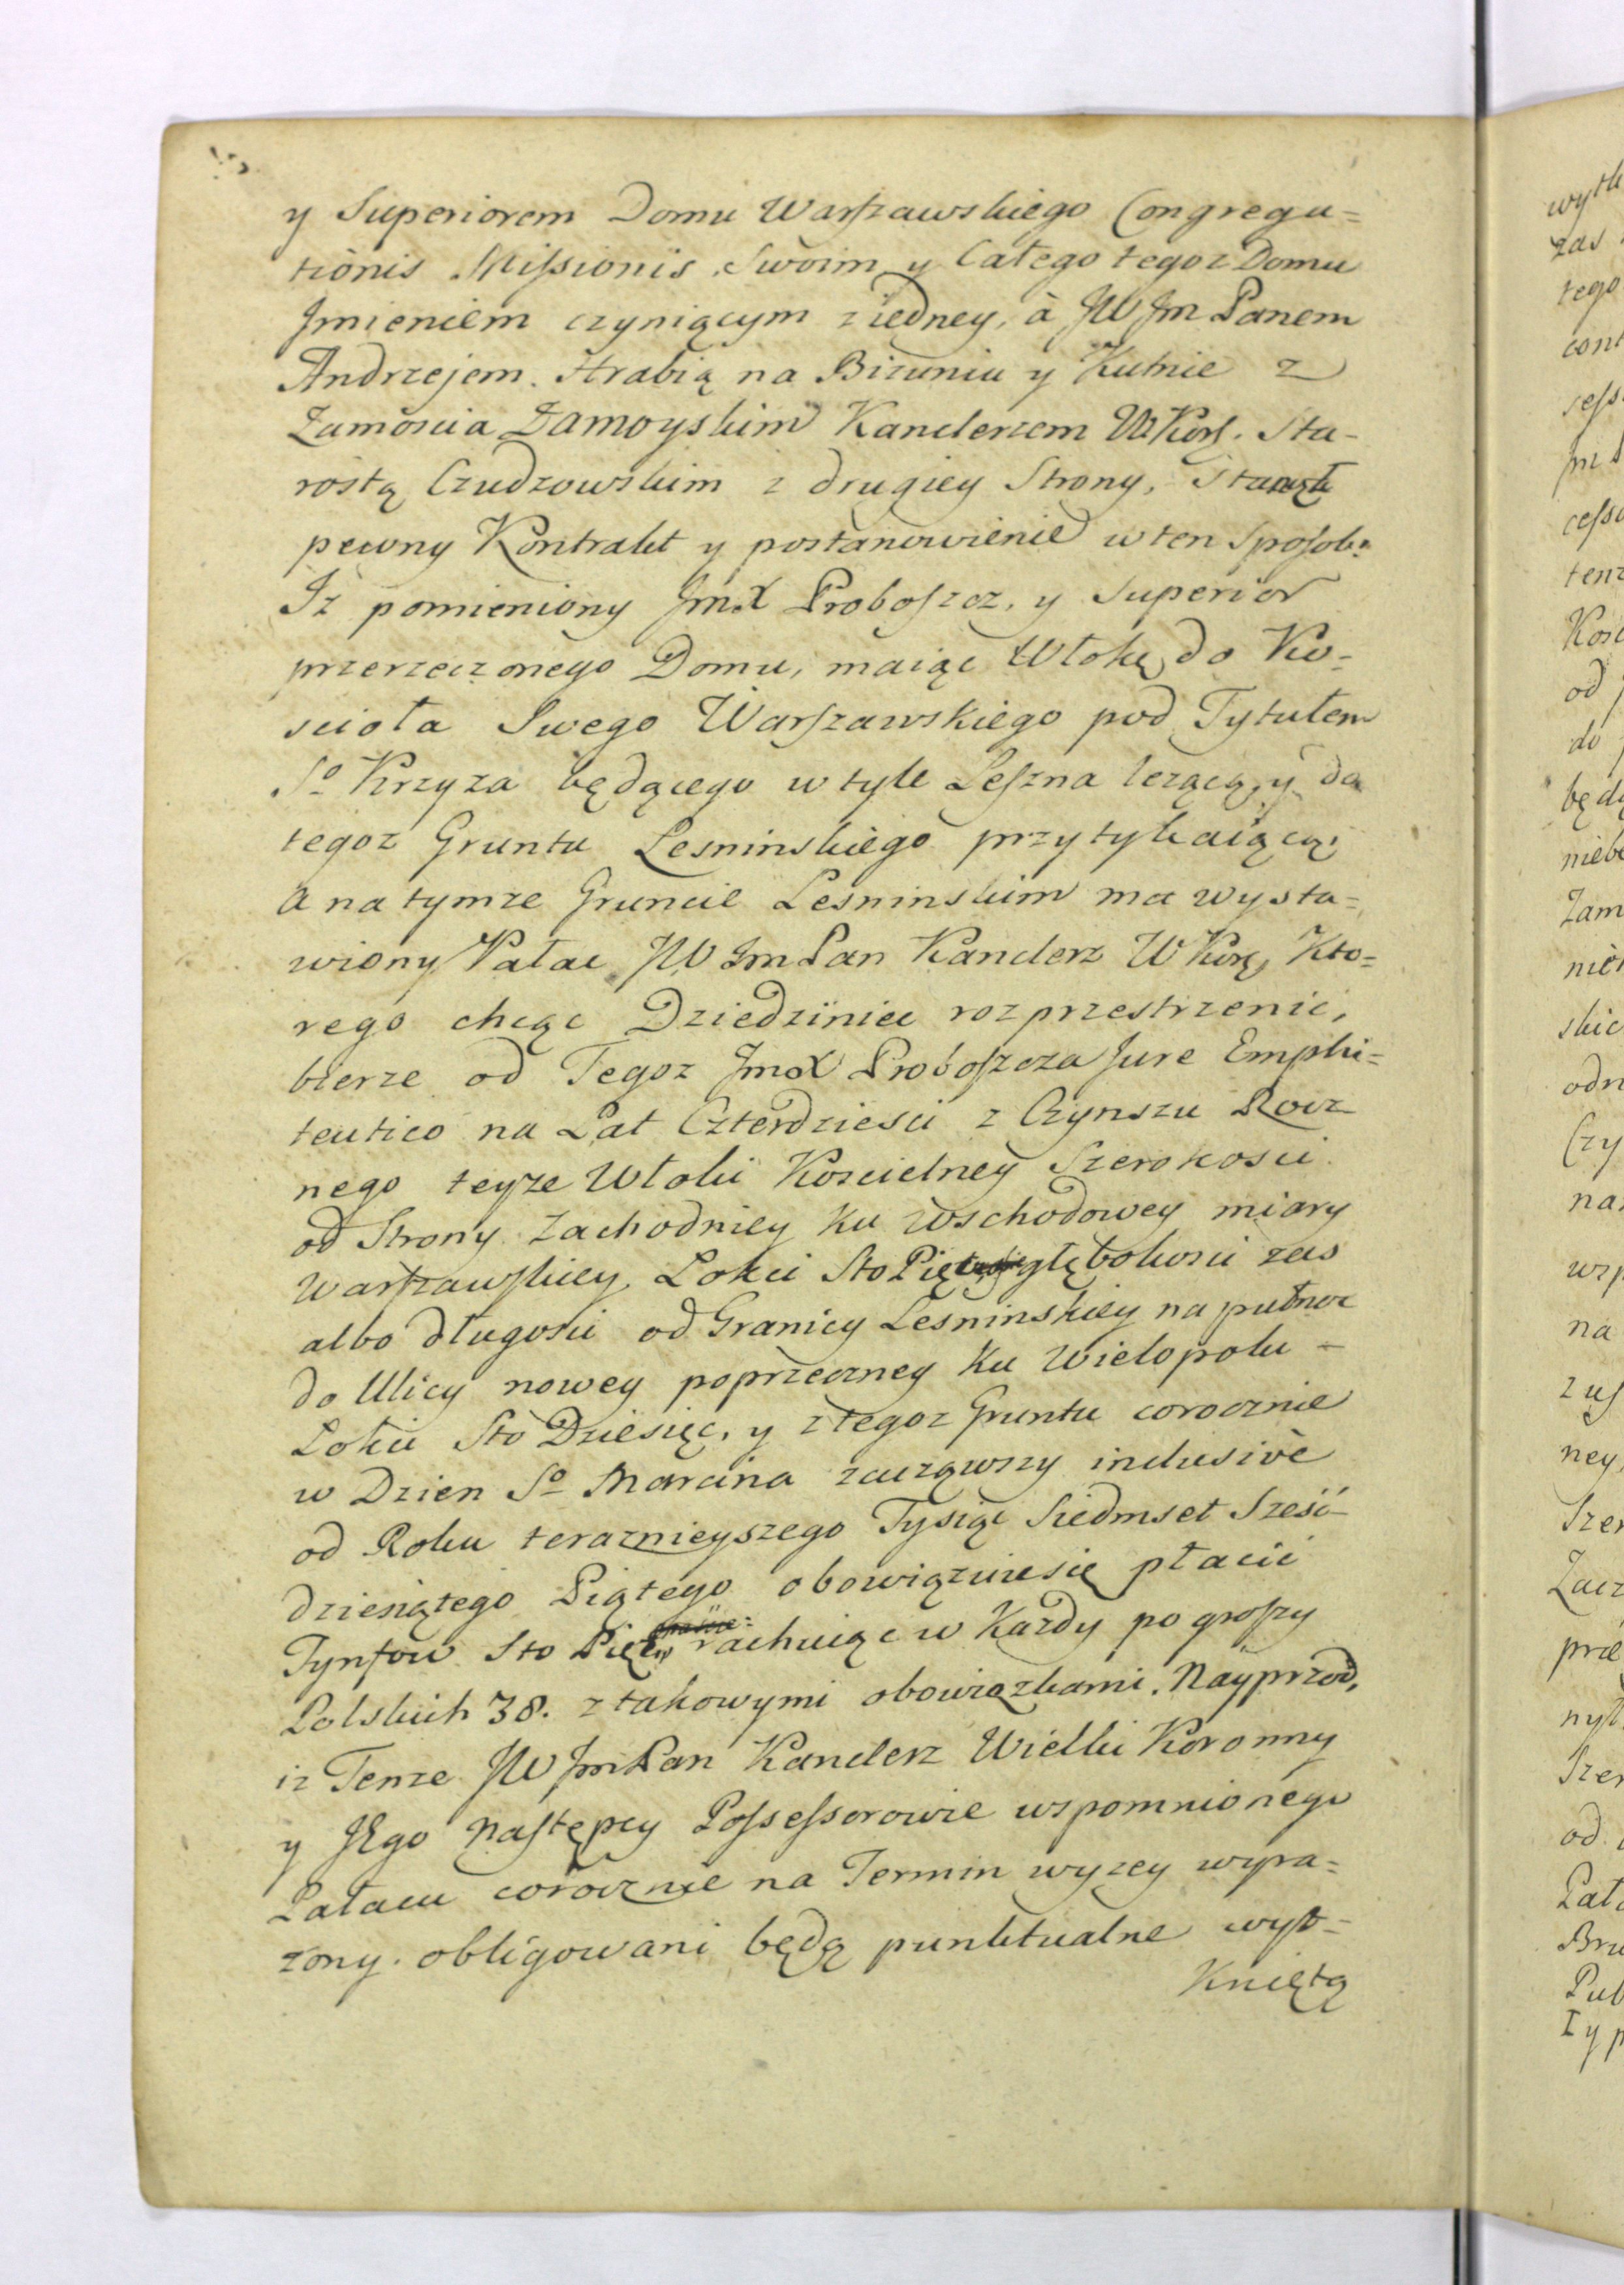 y Superiorem Domu Warszawskiego Congrega=
tionis Missionis, Swoim y Całego tegoz Domu
Jmieniem czyniącym z iedney, à JW Jm Panem
Andrzejem Hrabią na Bizuniu y Kutnie z
Zamoscia Zamoyskim Kanclerzem W Kor. Sta-
rostą Czudzowskim z drugiey Strony, Stanął
pewny Kontrakt y postanowienie w ten Sposob:
Iz pomieniony JmX Proboszcz, y Superior
przerzeczonego Domu, maiąc Włokę do Ko=
scioła Swego Warszawskiego pod Tytułem
Sº Krzyza będącego w tyle Leszna lezącą, y do
tegoz Gruntu Lesninskiego przytykaiącą,
a na tymze Gruncie Lesninskim ma wysta=
wiony Pałac JW Jm Pan Kanclerz W Kor, Kto=
rego chcąc Dziedziniec rozprzestrzenic,
bierze od Tegoz JmX Proboszcza Jure Emphi=
teutico na Lat Czterdziesci z Czynszu Rocz
nego teyze Włoki Koscielney Szerokosci
od Strony Zachodniey Ku Wschodowey miary
Warszawskiey, Lokci Sto Pięc głębokosci zas
albo długosci od Granicy Lesninskiey na pułnoc
do Ulicy nowey poprzeczney Ku Wielopolu –
Lokci Sto Dziesięc, y z tegoz Gruntu corocznie
w Dzien Sº Marcina zacząwszy inclusivè
od Roku teraznieyszego Tysiąc Siedmset Sześć-
dziesiątego Piątego obowiązuie się płacić
Tynfow Sto Pięc, rachuiąc w Kazdy po groszy
Polskich 38. z takowymi obowiązkami. Nayprzod,
iz Tenze JW Jm Pan Kanclerz Wielki Koronny
y JEgo Następcy Possessorowie wspomnionego
Pałacu corocznie na Termin wyzey wyra=
zony. obligowani będą punktualne wyt=
Kniętą